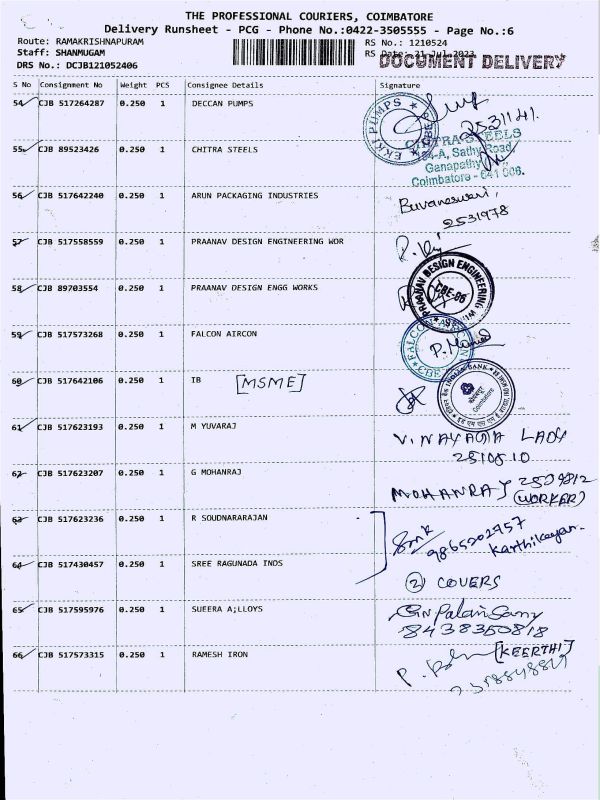 THE PROFESSIONAL COURIERS, COIMBATORE
Delivery Runsheet - PCG - Phone No.:0422-3505555 - Page No.:6
Route: RAMAKRISHNAPURAM
RS No.: 1210524
Staff: SHANMUGAM
RS Date: 21-Jul-2023
DRS No.: DCJB121052406
DOCUMENT DELIVERY
S No Consignment No Weight PCS Consignee Details Signature
54 CJB 517264287 0.250 1 DECCAN PUMPS
EKKI PUMPS CBE
2531141.
55 CJB 89523426 0.250 1 CHITRA STEELS
CHITRA STEELS
Sathy Road,
Ganapathy
Coimbatore - 641 006.
56 CJB 517642240 0.250 1 ARUN PACKAGING INDUSTRIES
Buvaneswari,
2531978
57 CJB 517558559 0.250 1 PRAANAV DESIGN ENGINEERING WOR
58 CJB 89703554 0.250 1 PRAANAV DESIGN ENGG WORKS
PRAANAV DESIGN ENGINEERING WORKS
CBE-06
59 CJB 517573268 0.250 1 FALCON AIRCON
FALCON
CBE
60 CJB 517642106 0.250 1 IB [MSME]
INDIAN BANK
Coimbatore
61 CJB 517623193 0.250 1 M YUVARAJ
VINAYAGA LADY
62 CJB 517623207 0.250 1 G MOHANRAJ
MOHANRAJ
(WORKER)
63 CJB 517623236 0.250 1 R SOUDNARARAJAN
9865202957
Karthikeyan.
64 CJB 517430457 0.250 1 SREE RAGUNADA INDS
② COVERS
65 CJB 517595976 0.250 1 SUEERA A;LLOYS
8438350818
66 CJB 517573315 0.250 1 RAMESH IRON
[KEERTHI]